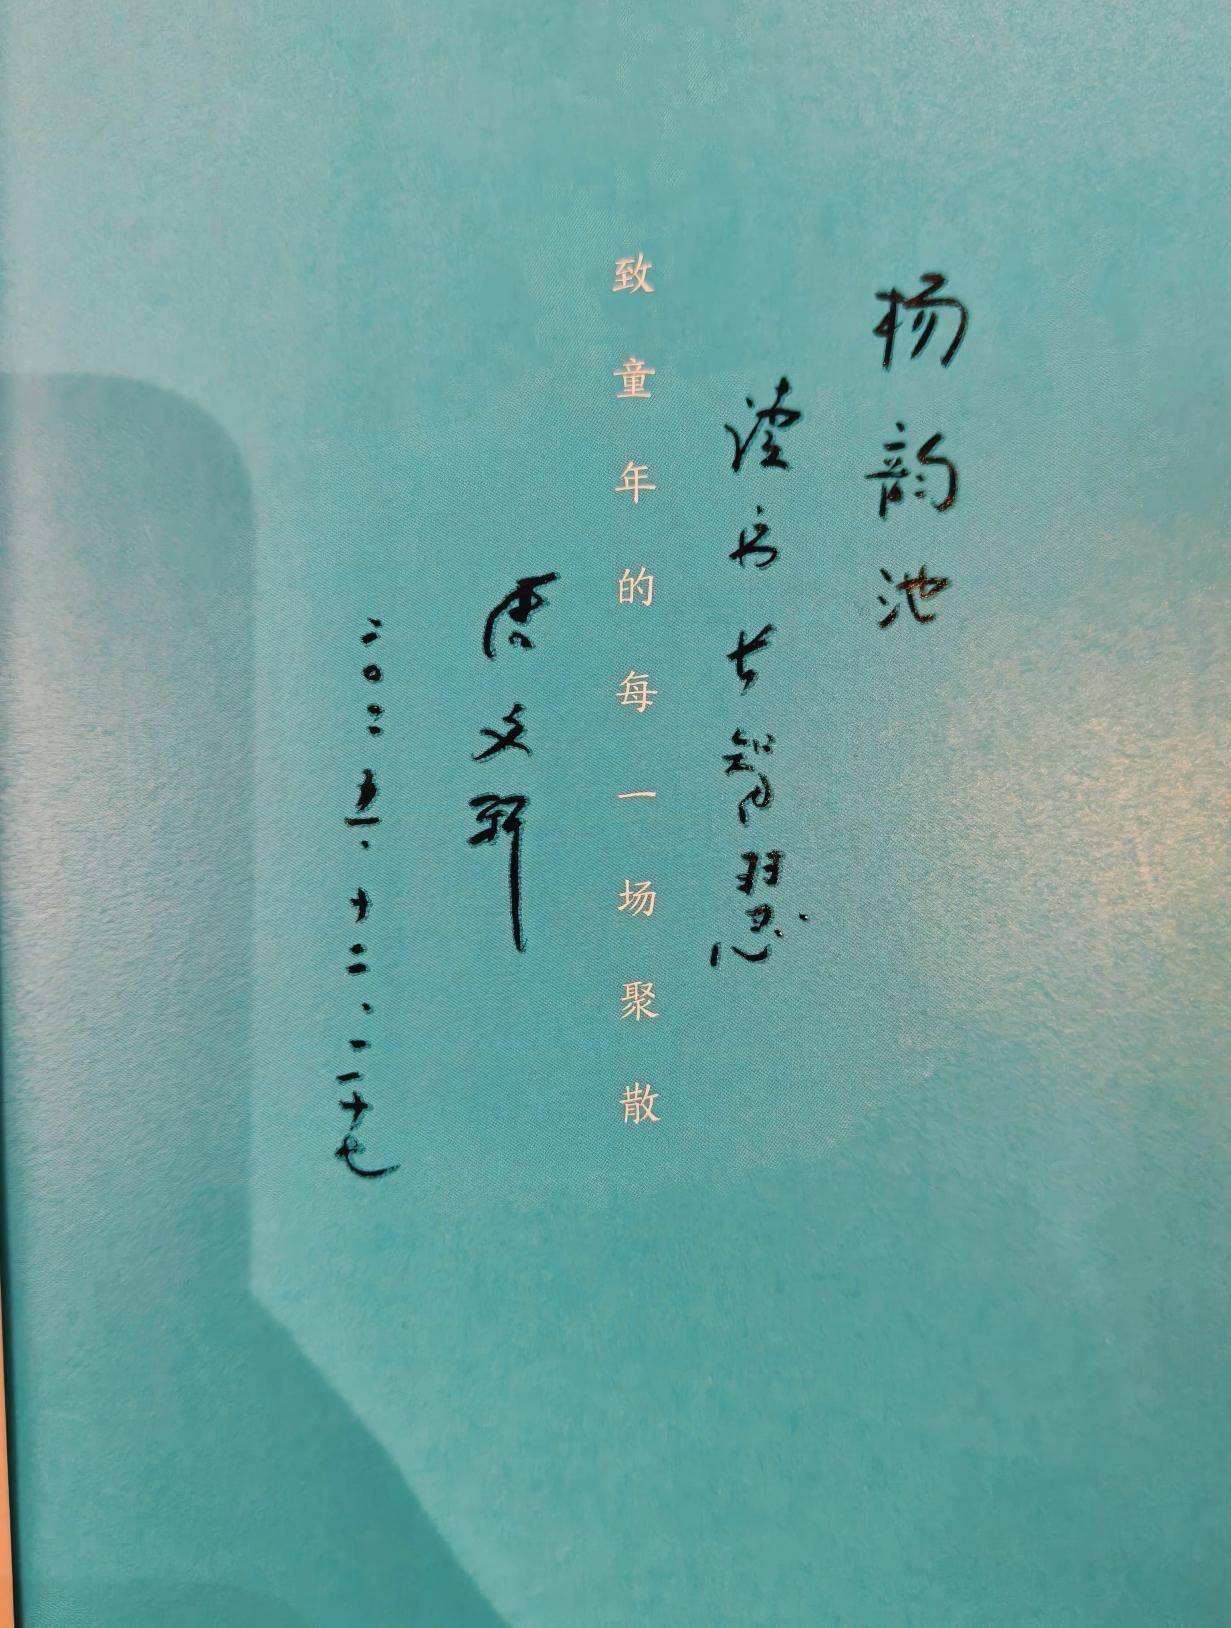 杨韵池
读书长智慧
致童年的每一场聚散
唐文轩
二〇二五.十二.二十七